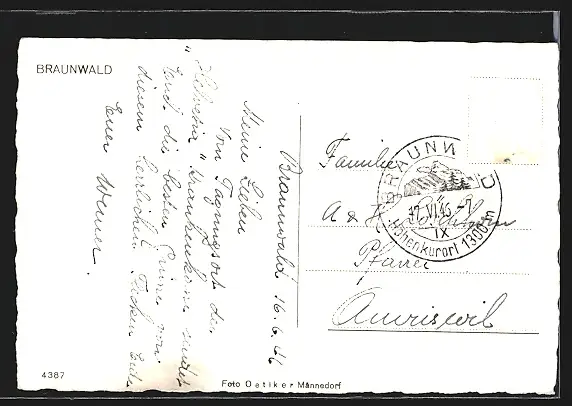 BRAUNWALD
Braunwald 16.6.46
Meine Lieben
Vom Tagungsort der
"Helvetia" Krankenkasse sendet
Euch die besten Grüsse von
diesem herrlichen Flecken Erde
Euer Werner.
Familie
A &
Pfarrer
Amriswil
BRAUNWALD
17.VI.46
IX
Höhenkurort 1300m
4387
Foto Oetiker Männedorf